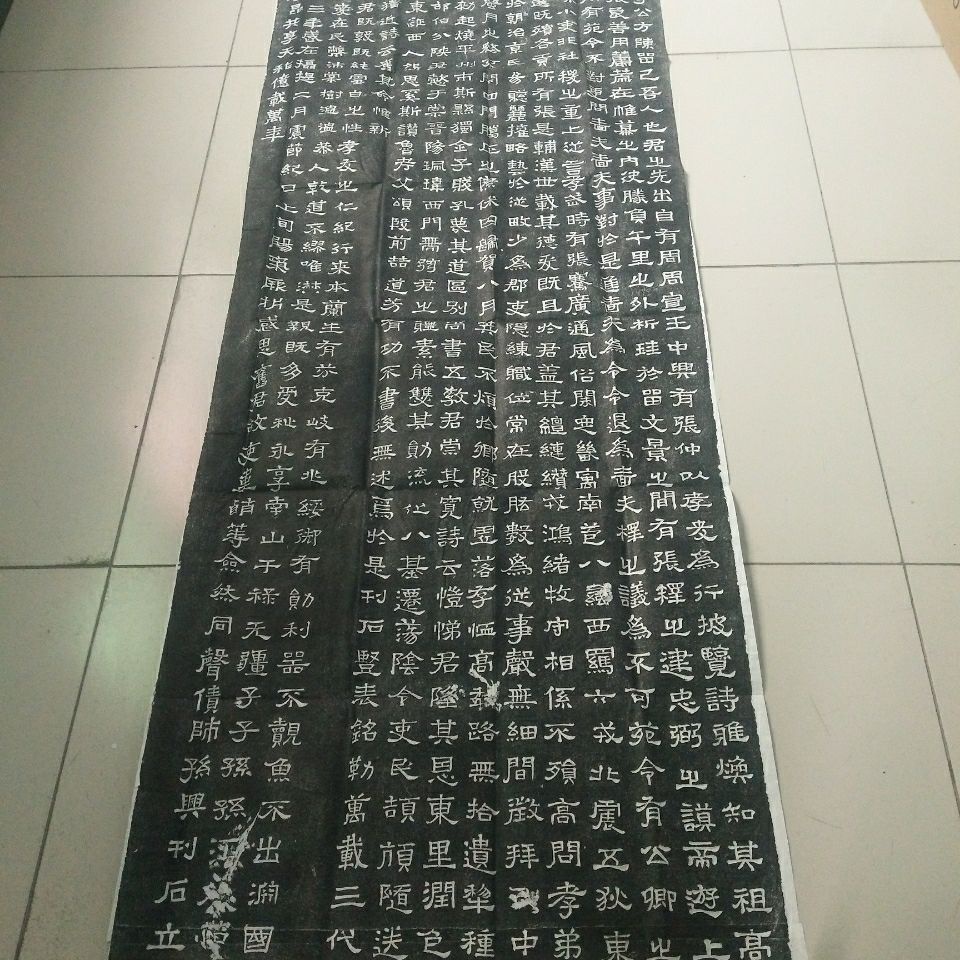 公方陳留己吾人也君之先出自有周周宣王中興有張仲以孝友為行披覽詩雅煥知其祖高
張良善用籌策在帷幕之內決勝負千里之外析珪於留文景之間有張釋之建忠弼之謨帝遊上
所有苑令不對更問嗇夫嗇夫事對於是進嗇夫為令令退為嗇夫釋之議為不可苑令有公卿之
小吏非社稷之重上從言孝武時有張騫廣通風俗開定畿寓南苞八蠻西羈六戎北震五狄東
遠既殯各貢所有張是輔漢世載其德爰既且於君蓋其繵縺纘戎鴻緒牧守相係不殞高問孝弟
於朝治京氏易聰麗權略藝於從畋少為郡吏隱練職位常在股肱數為從事聲無細聞徵拜郎中
蠶月之務不閉四門臘正之際休囚歸賀八月算民不煩於鄉隨就虛落存恤高年路無拾遺犁種
初起燒平城市斯縣獨全子賤孔蔑其道區別尚書五教君崇其寬詩云愷悌君隆其恩東里潤色
邵伯分陝君懿于棠晉陽珮瑋西門帶弦君之體素能雙其勛流化八基遷蕩陰令吏民頡頏隨送
東征西人怨思奚斯讚魯考父頌殷前喆遺芳有功不書後無述焉於是刊石豎表銘勒萬載三代
猶近詩云舊國其命惟新
君既敦既純雪白之性孝友之仁紀行來本蘭生有芬克岐有兆綏御有勛利器不覿魚不出淵國
愛在民蔽沛棠樹溫溫恭人乾道不繆唯淑是親既多受祉永享南山干祿无疆子子孫孫
三年歲在攝提二月震節紀日上旬陽氣厥析感思舊君故吏韋萌等僉然同聲賃師孫興刊石立
昆共享天祚億載萬年